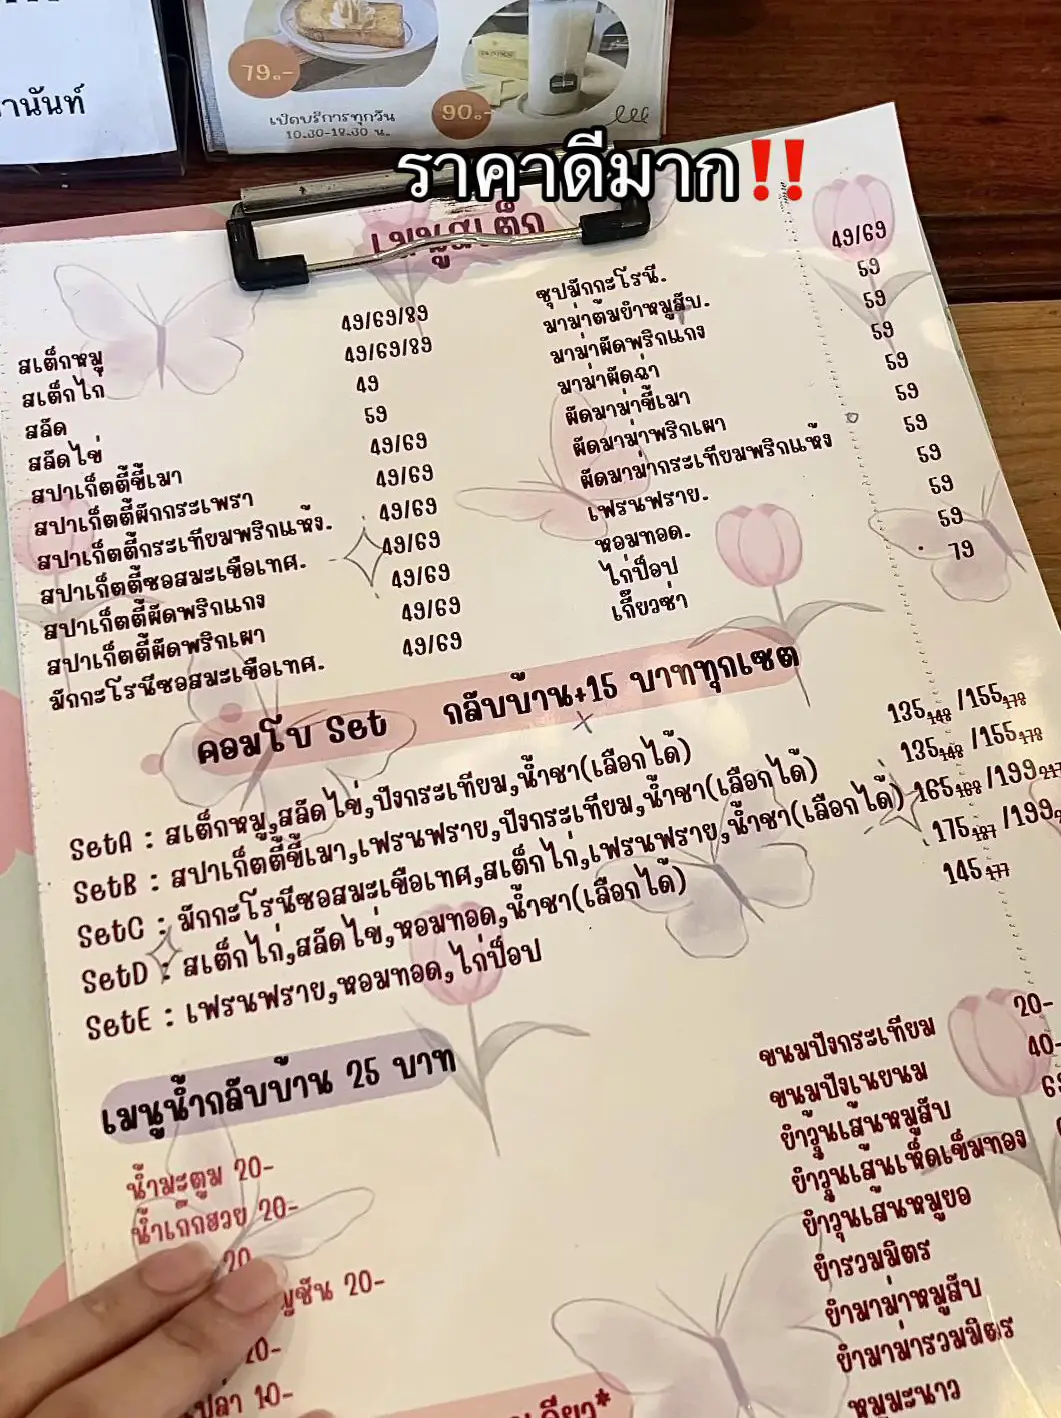 านันท์
79.-
เปิดบริการทุกวัน
10.30-19.30 น.
90.-
ราคาดีมาก‼️
เมนูสเต็ก
สเต็กหมู 49/69/89
สเต็กไก่ 49/69/89
สลัด 49
สลัดไข่ 59
สปาเก็ตตี้ขี้เมา 49/69
สปาเก็ตตี้ผักกระเพรา 49/69
สปาเก็ตตี้กระเทียมพริกแห้ง. 49/69
สปาเก็ตตี้ซอสมะเขือเทศ. 49/69
สปาเก็ตตี้ผัดพริกแกง 49/69
สปาเก็ตตี้ผัดพริกเผา 49/69
มักกะโรนีซอสมะเขือเทศ. 49/69
ซุปมักกะโรนี. 49/69
มาม่าต้มยำหมูสับ. 59
มาม่าผัดพริกแกง 59
มาม่าผัดฉ่า 59
ผัดมาม่าขี้เมา 59
ผัดมาม่าพริกเผา 59
ผัดมาม่ากระเทียมพริกแห้ง 59
เฟรนฟราย. 59
หอมทอด. 59
ไก่ป็อป 59
เกี๊ยวซ่า 79
คอมโบ Set กลับบ้าน+15 บาททุกเซต
SetA : สเต็กหมู,สลัดไข่,ปังกระเทียม,น้ำชา(เลือกได้) 135 148 /155 178
SetB : สปาเก็ตตี้ขี้เมา,เฟรนฟราย,ปังกระเทียม,น้ำชา(เลือกได้) 135 148 /155 178
SetC : มักกะโรนีซอสมะเขือเทศ,สเต็กไก่,เฟรนฟราย,น้ำชา(เลือกได้) 165 188 /199 217
SetD : สเต็กไก่,สลัดไข่,หอมทอด,น้ำชา(เลือกได้) 175 187 /199
SetE : เฟรนฟราย,หอมทอด,ไก่ป็อป 145 177
เมนูน้ำกลับบ้าน 25 บาท
น้ำมะตูม 20-
น้ำเก็กฮวย 20-
20
ัญชัน 20-
20-
เปล่า 10-
ขนมปังกระเทียม 20-
ขนมปังเนยนม 40-
ยำวุ้นเส้นหมูสับ
ยำวุ้นเส้นเห็ดเข็มทอง
ยำวุ้นเส้นหมูยอ
ยำรวมมิตร
ยำมาม่าหมูสับ
ยำมาม่ารวมมิตร
หมูมะนาว